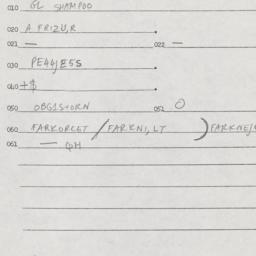 010 GL SHAMPOO
020 A FRIZU,R
021 — 022 —
030 PE44JE5S
040 +$
050 OBG1S+ORN 052 O
060 FARKOPCET / FARKNI, LT ) FARKNE/
061 — QM